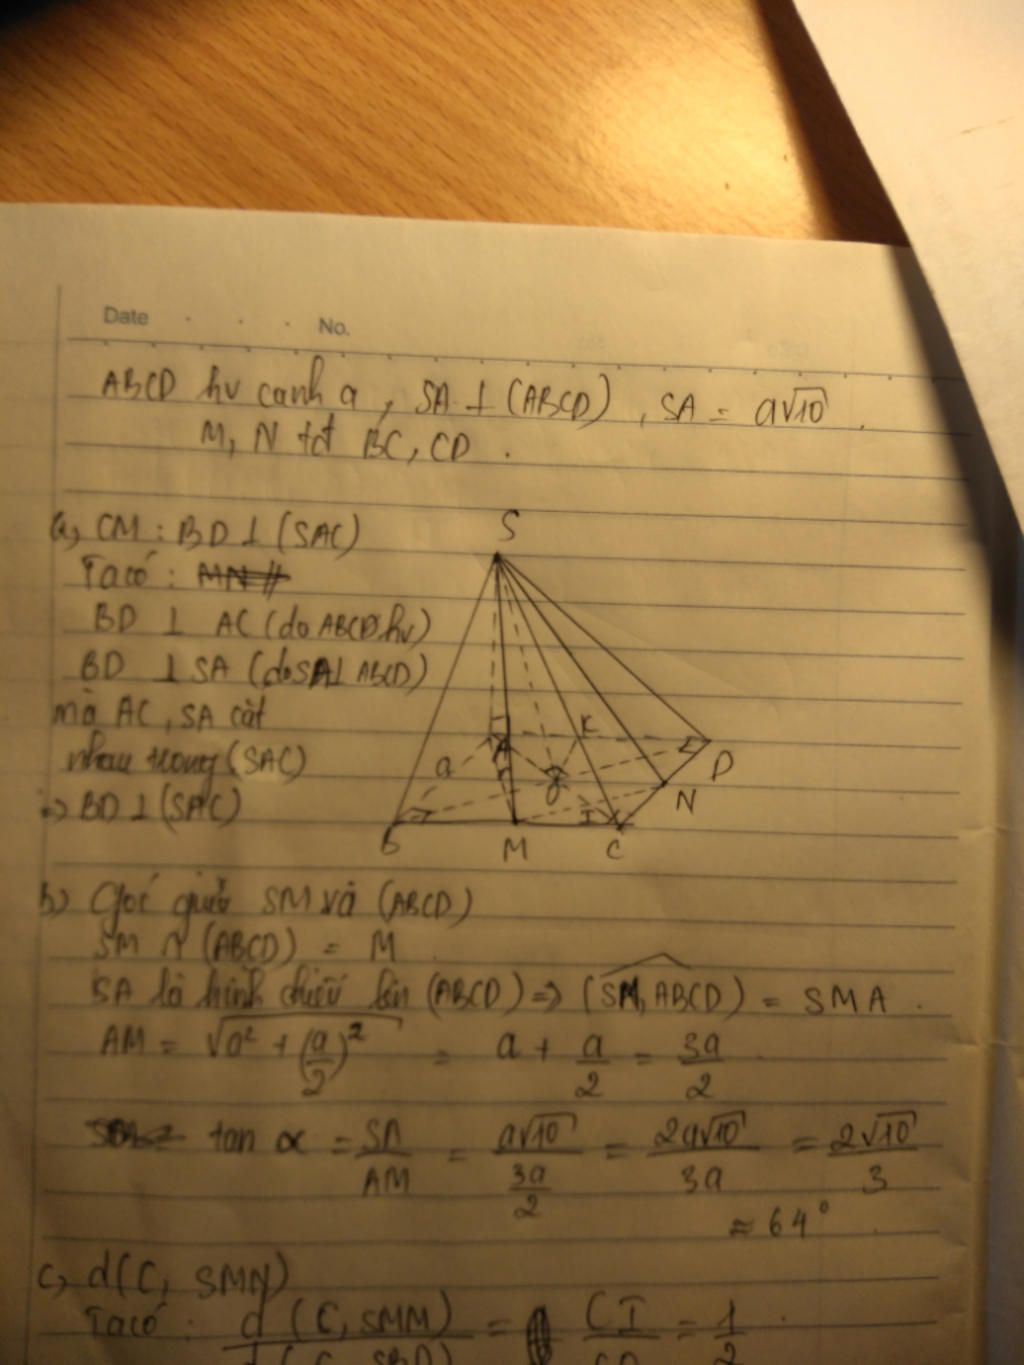 Date . . . No.
ABCD hv cạnh a, SA ⊥ (ABCD), SA = a√10.
M, N tđ BC, CD.
a, CM: BD ⊥ (SAC)
Ta có: MN //
BD ⊥ AC (do ABCD hv)
BD ⊥ SA (do SA ⊥ ABCD)
mà AC, SA cắt
nhau trong (SAC)
=> BD ⊥ (SAC)
S
a
A
K
D
O
N
I
B
M
C
b) Góc giữa SM và (ABCD)
SM ∩ (ABCD) = M
SA là hình chiếu lên (ABCD) => (SM, ABCD) = SMA.
AM = √(a² + (a/2)²) = a + a/2 = 3a/2
tan α = SA/AM = a√10/(3a/2) = 2a√10/3a = 2√10/3
≈ 64°
c, d(C, SMN)
Ta có: d(C, SMM) = CI = 1/2